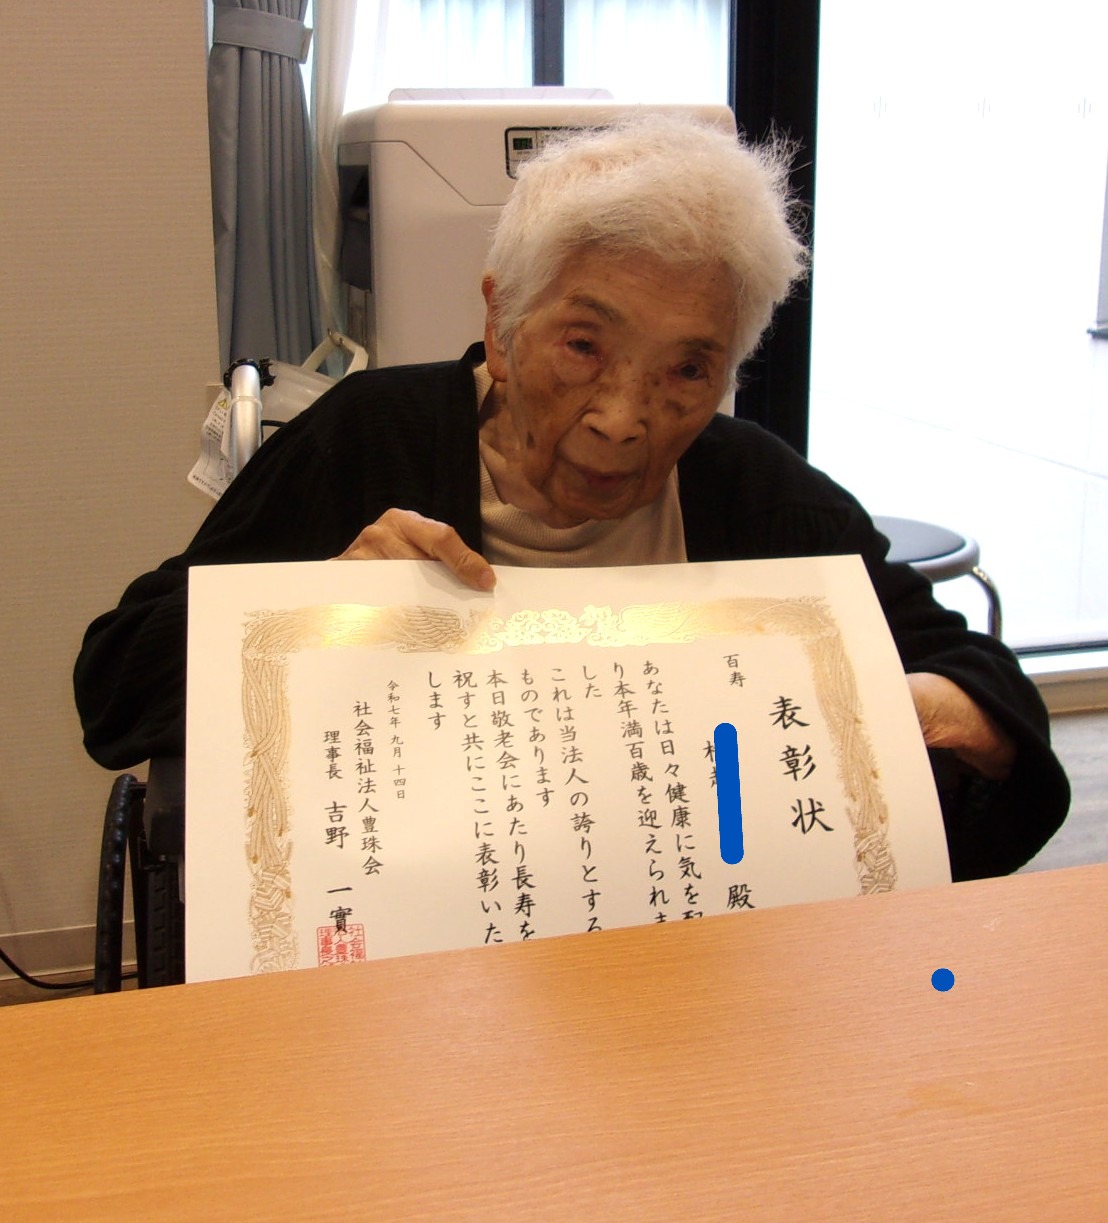 表彰状
百寿
殿
あなたは日々健康に気を配
り本年満百歳を迎えられま
した
これは当法人の誇りとする
ものであります
本日敬老会にあたり長寿を
祝すと共にここに表彰いた
します
令和七年九月十四日
社会福祉法人豊珠会
理事長 吉野 一實